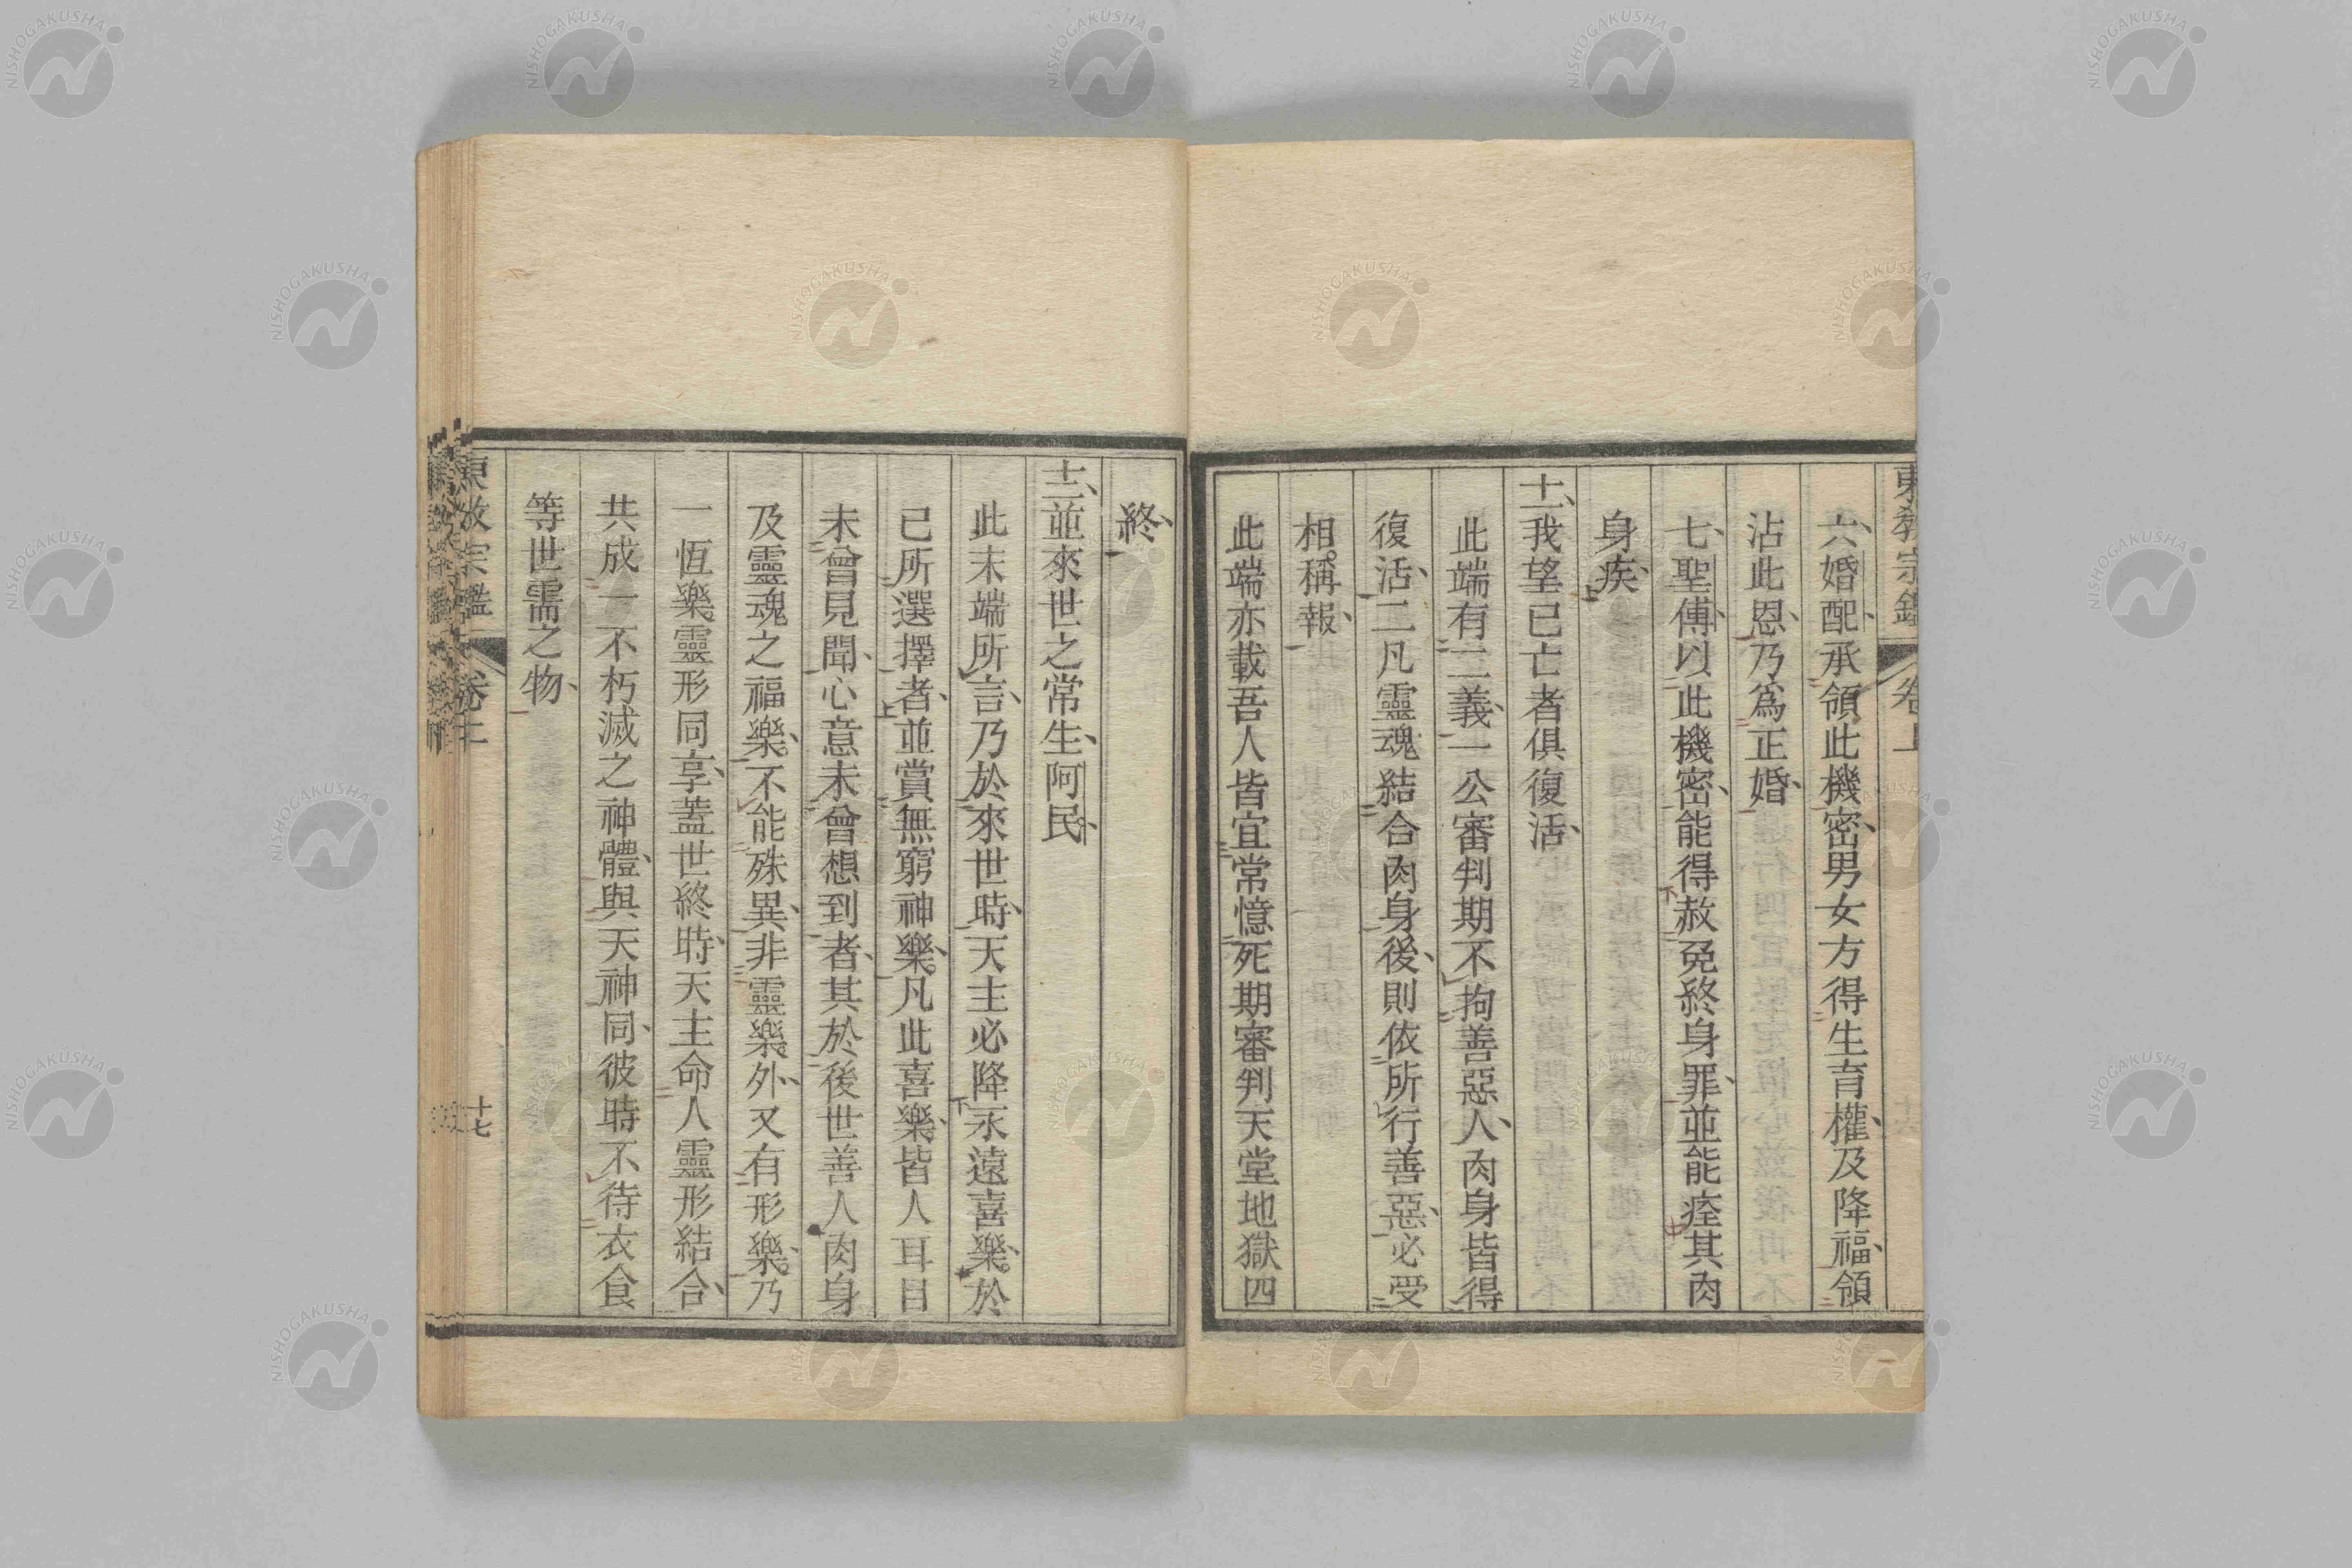 東教宗鑑 卷上
六、婚配、承領此機密、男女方得生育權、及降福、領
沾此恩、乃爲正婚、
七、聖傅、以此機密、能得赦免終身罪、並能痊其肉
身疾、
十一、我望已亡者俱復活、
此端有二義、一公審判期、不拘善惡人、肉身皆得
復活、二凡靈魂結合肉身後、則依所行善惡、必受
相稱報、
此端亦載吾人皆宜常憶死期審判天堂地獄四
終、
十二、並來世之常生、阿民、
此末端所言、乃於來世時、天主必降永遠喜樂。於
已所選擇者、並賞無窮神樂。凡此喜樂、皆人耳目
未曾見聞、心意未曾想到者、其於後世善人肉身
及靈魂之福樂。不能殊異、非靈樂外、又有形樂。乃
一恆樂靈形同享、蓋世終時、天主命人靈形結合、
共成一不朽滅之神體、與天神同、彼時不待衣食
等世需之物、
東教宗鑑 卷上 十七
NISHOGAKUSHA